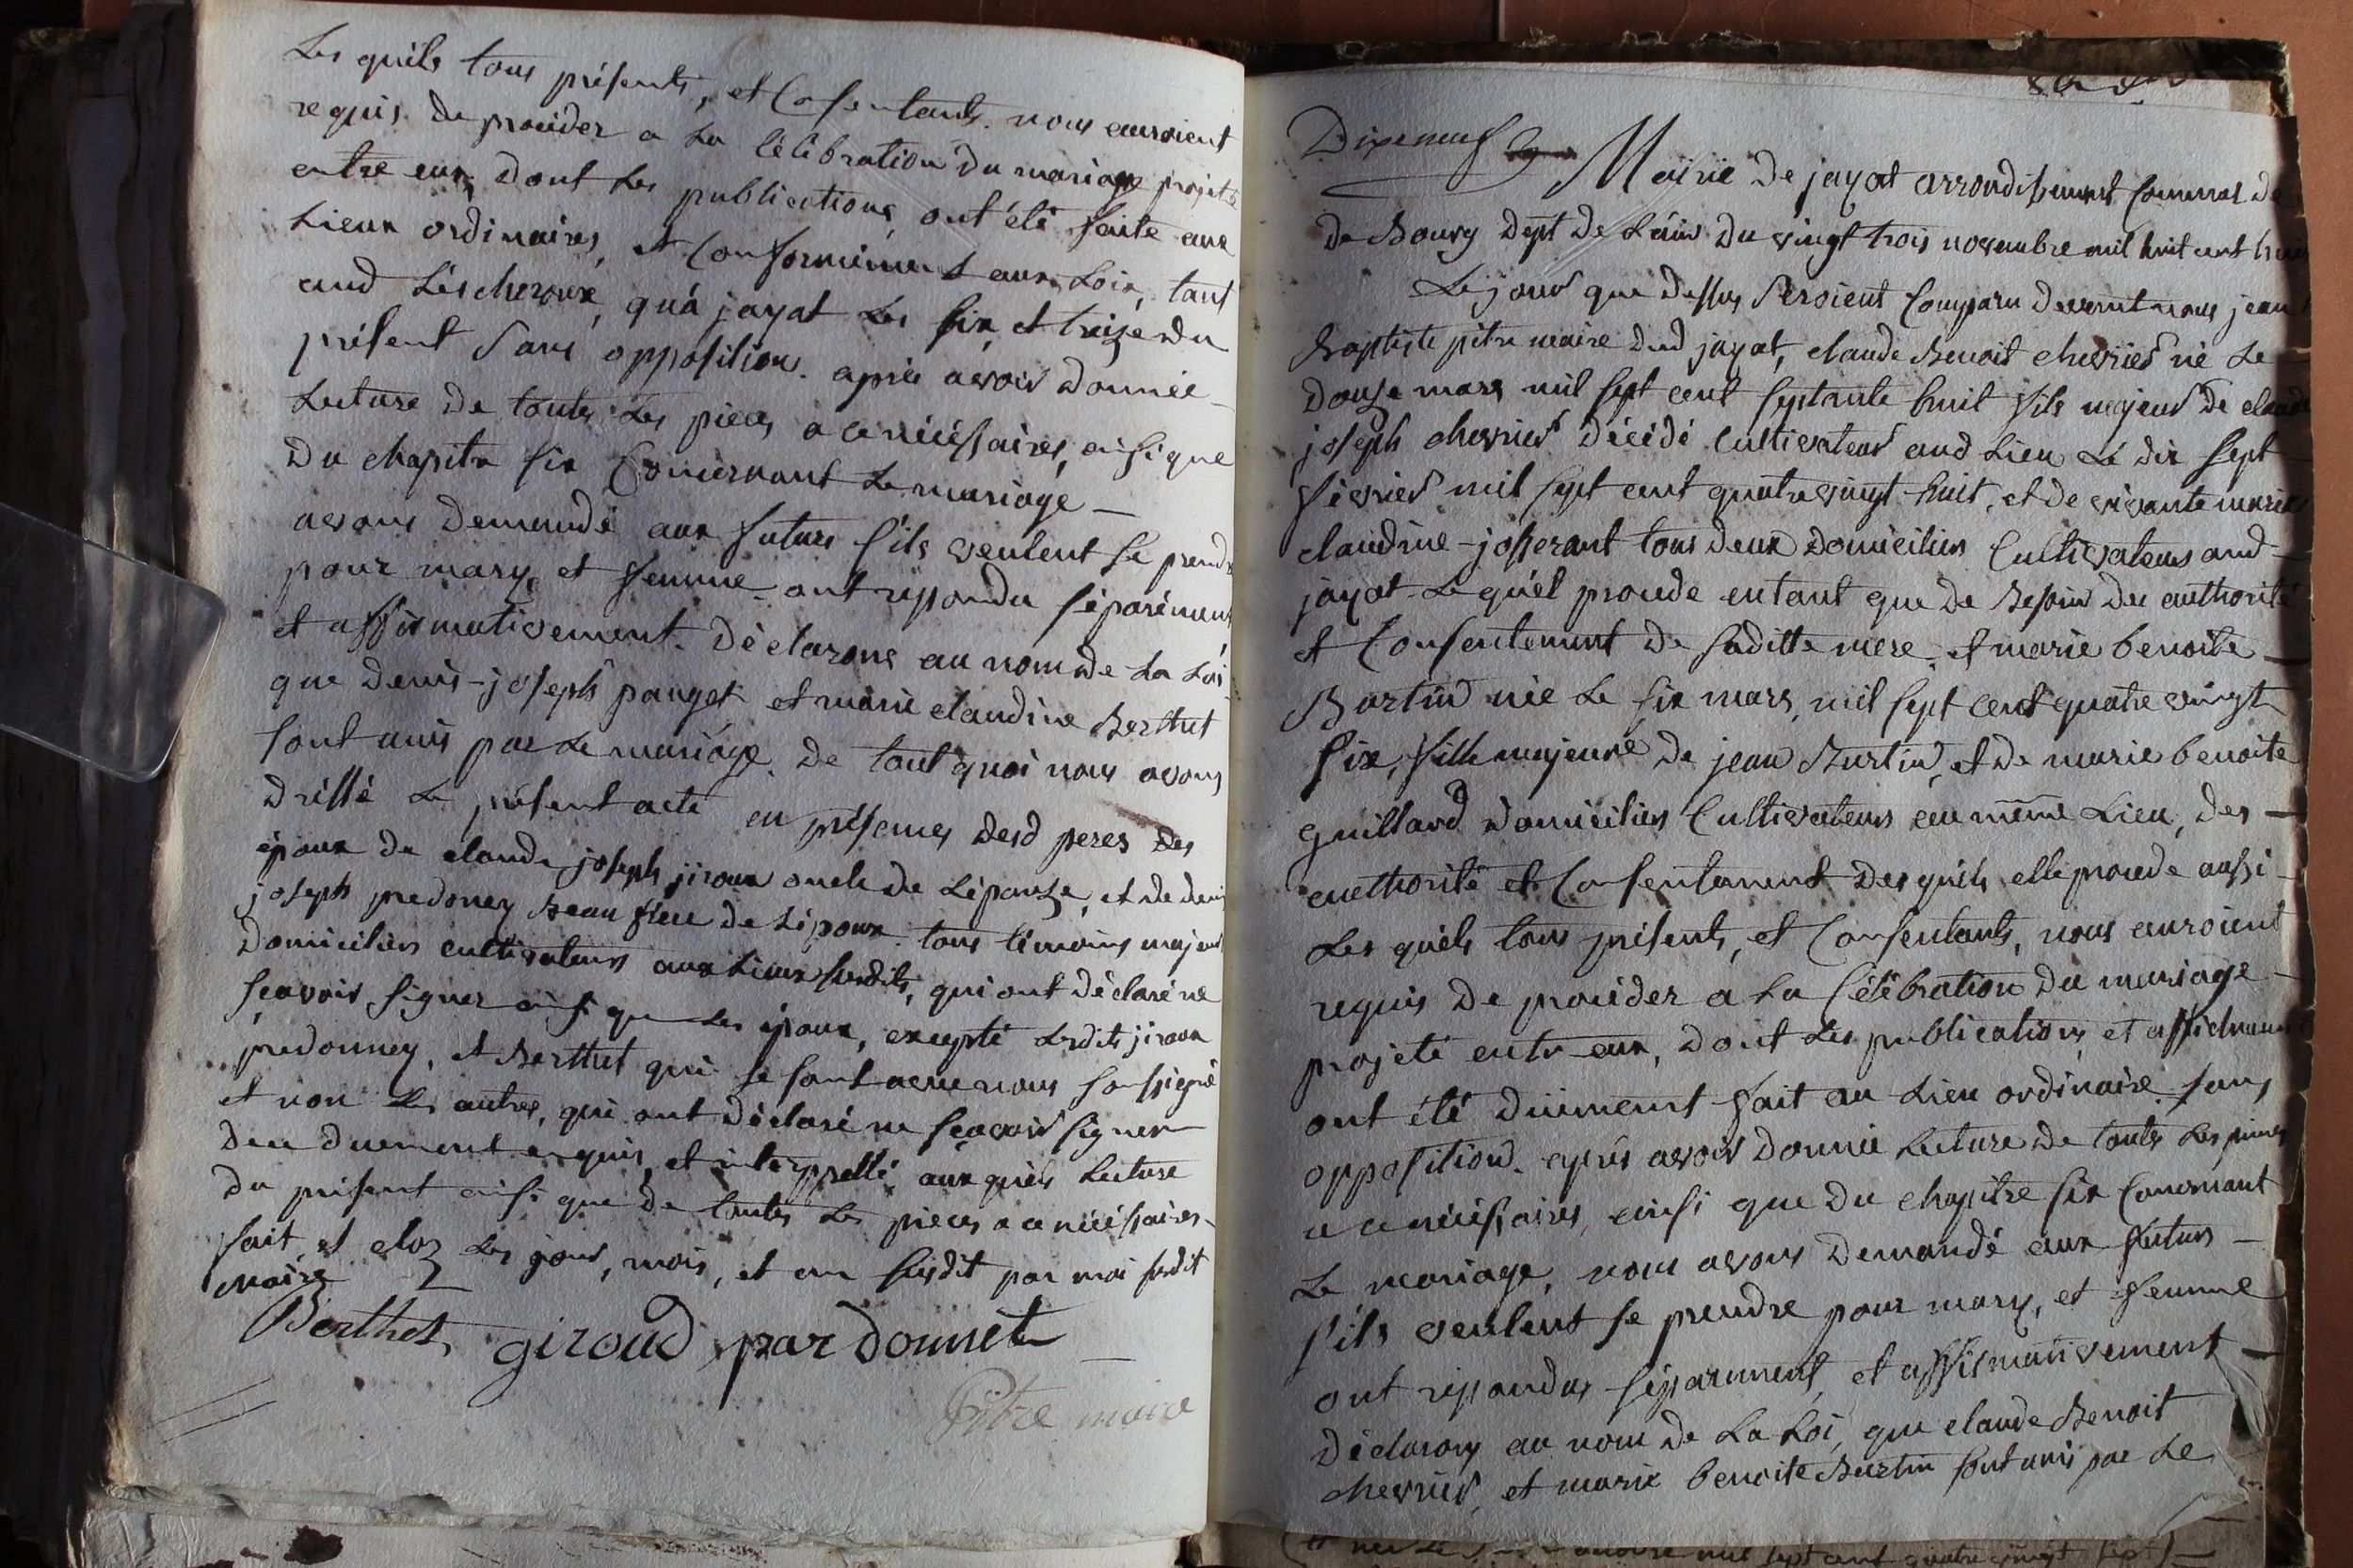 Les quels tous présents, et Consentants. nous auroient
requis de proceder a La Célébration du mariage projeté
entre eux, dont Les publications ont été faite aux
Lieux ordinaires, et Conformément aux Loix, tant
aud Léscheroux, qu'a jayat Les six, et treize du
présent sans opposition. après avoir donnée
Lecture de toutes Les pieces a ce nécéssaires, ainsi que
du chapitre six Concernant Le mariage —
avons demandé aux futurs s'ils veulent se prendre
pour mary, et femme ont repondu séparément
et affirmativement. Déclarons au nom de La Loi
que denis-joseph panget et marie claudine Berthet
sont unis par Le mariage. de tout quoi nous avons
dréssé Le présent acte en présences desd peres des
époux de claude joseph jiroux oncle de Lépouze, et de denis
joseph predoney Beau frere de Lépoux. tous témoins majeurs
domiciliés cultivateurs aux Lieux susdits, qui ont déclaré ne
sçavoir signer ainsi que Les époux, excepté Lesdits jiroux
predonney, et Berthet qui se sont avec nous soussigné
et non Les autres, qui ont déclaré ne sçavoir signer
de ce duement enquis, et interppellé, aux quels Lecture
du présent ainsi que de toutes Les pieces a ce nécéssaires.
fait, et cloz Les jour, mois, et an susdit par moi susdit
maire
Berthet giroud pardonnet
Pitre maire
Dixeneuf
Mairie de jayat arrondissement Communal de
de Bourg dept de Láin du vingt trois novembre mil huit cent
Le jour que dessus Seroient Comparu devant nous jean
Baptiste pitre maire dud jayat, claude Benoit chevrier né Le
douze mars mil sept cent septante huit fils majeur de claude
joseph chevrier décédé Cultivateur aud Lieu Lé dix sept
février mil sept cent quatre vingt huit, et de vivante marie
claudine-josserant tous deux domiciliés Cultivateurs aud
jayat Le quél procede entant que de Besoin de authorité
et Consentement de saditte mere, et marie benoite
Burtin née Le six mars, mil sept cent quatre vingt
six, fille majeure de jean Burtin, et de marie benoite
guillard domiciliés Cultivateurs au même Lieu, des
authorité et Consentement des quéls elle procede aussi
Les quéls tous présents, et Consentants, nous auroient
requis de procéder a La Célébration du mariage
projeté entre eux, dont Les publications, et affiches
ont été duëment fait au Lieu ordinaire sans
opposition. après avoir donnée Lecture de toutes Les pieces
a ce nécéssaires, ainsi que du chapitre six Concernant
Le mariage, nous avons demandé aux futurs
s'ils veulent se prendre pour mary, et femme
ont repondus séparément, et affirmativement
Déclarons au nom de La Loi, que claude Benoit
chevrier, et marie benoite Burtin sont unis par Le